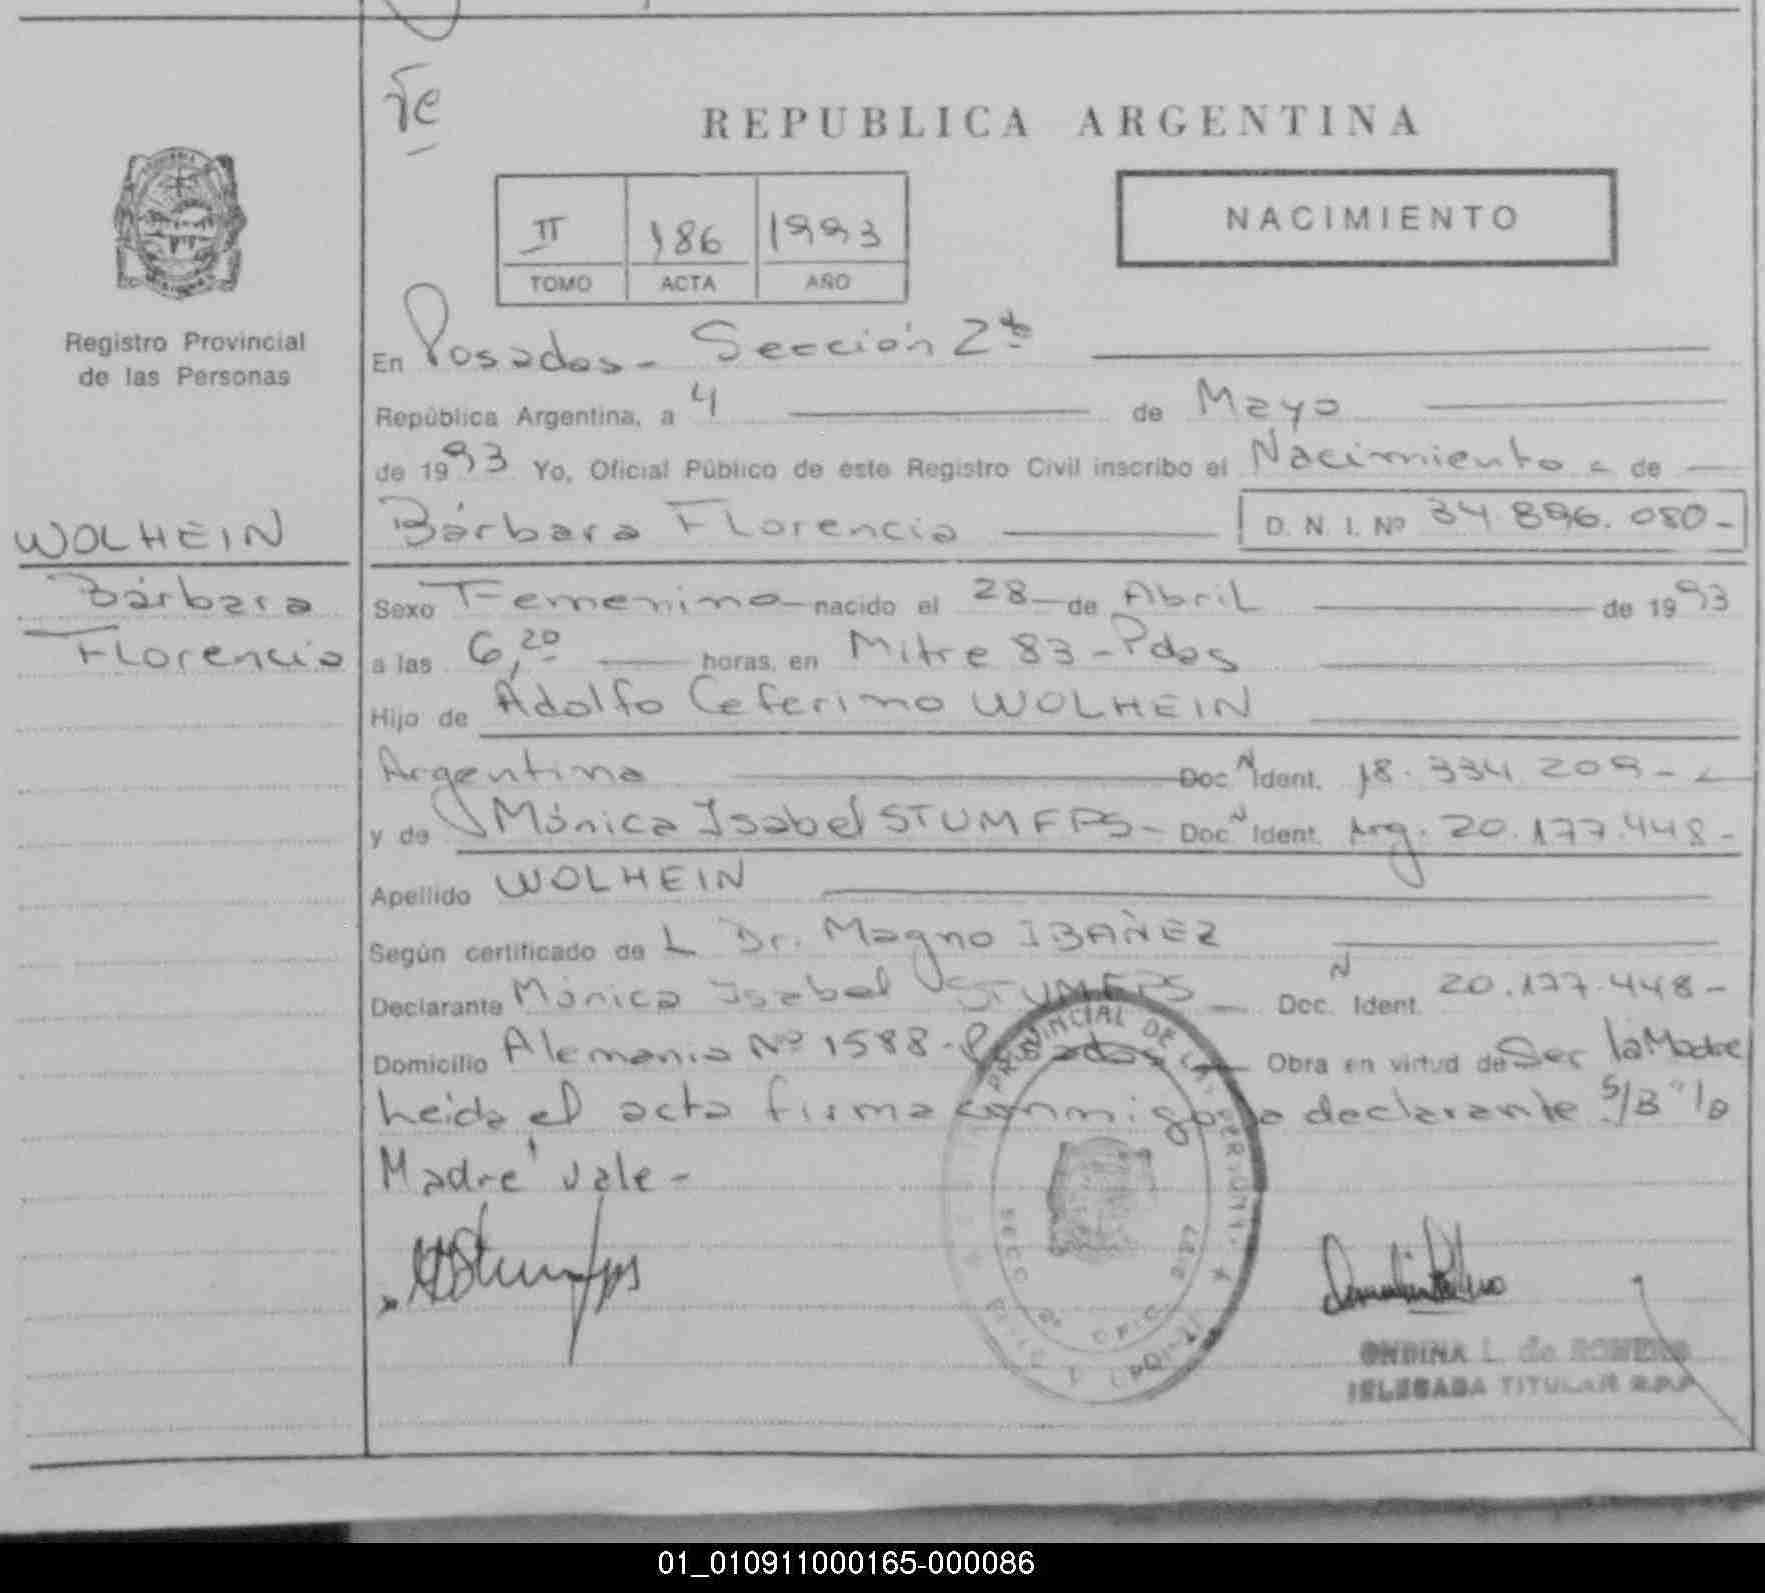 Fe
REPUBLICA ARGENTINA
NACIMIENTO
II 186 1993
TOMO ACTA AÑO
Registro Provincial
de las Personas
En Posadas - Sección 2ª
República Argentina, a 4 de Mayo
de 1993 Yo, Oficial Público de este Registro Civil inscribo el Nacimiento - de
WOLHEIN
Bárbara Florencia D. N. I. Nº 34.896.080-
Bárbara
Florencia
Sexo Femenino nacido el 28 de Abril de 1993
a las 6,20 horas, en Mitre 83 - Pdas
Hijo de Adolfo Ceferino WOLHEIN
Argentina Doc. N Ident. 18.334.209-
y de Mónica Isabel STUMFPS - Doc. N Ident. Arg. 20.177.448-
Apellido WOLHEIN
Según certificado de L Dr. Magno IBAÑEZ
Declarante Mónica Isabel STUMFPS - Doc. N Ident. 20.177.448-
Domicilio Alemania Nº 1588 - Posadas Obra en virtud de Ser la Madre
Leida el acta firma conmigo la declarante S/B "la
Madre" vale -
PROVINCIAL DE LAS PERSONAS
SECC 2ª OFIC
MStumfps
ONDINA L. de ROMERO
DELEGADA TITULAR R.P.P
01_010911000165-000086